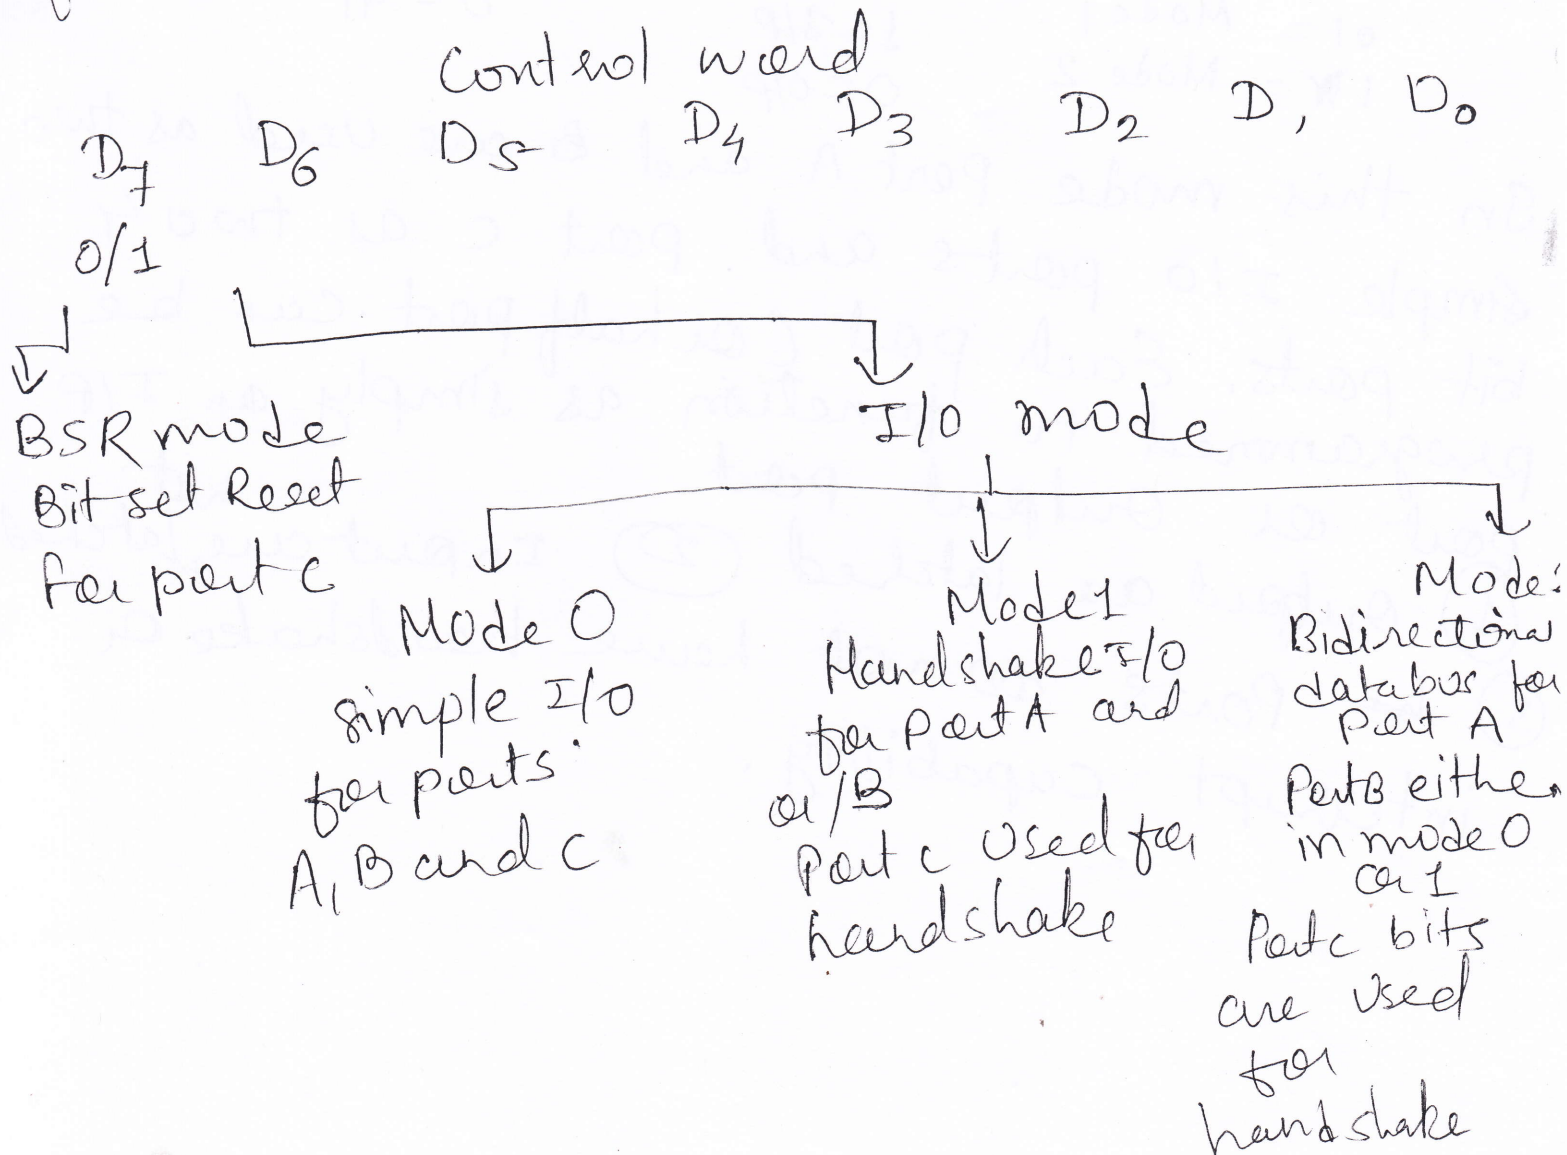 Control word
D7 D6 D5 D4 D3 D2 D1 D0
0/1
BSR mode
Bit set Reset
for port C
I/O mode
Mode 0
simple I/O
for ports
A, B and C
Mode 1
Handshake I/O
for Port A and
or/B
Port C Used for
handshake
Mode:
Bidirectional
databus for
Port A
Port B either
in mode 0
or 1
Port C bits
are used
for
handshake